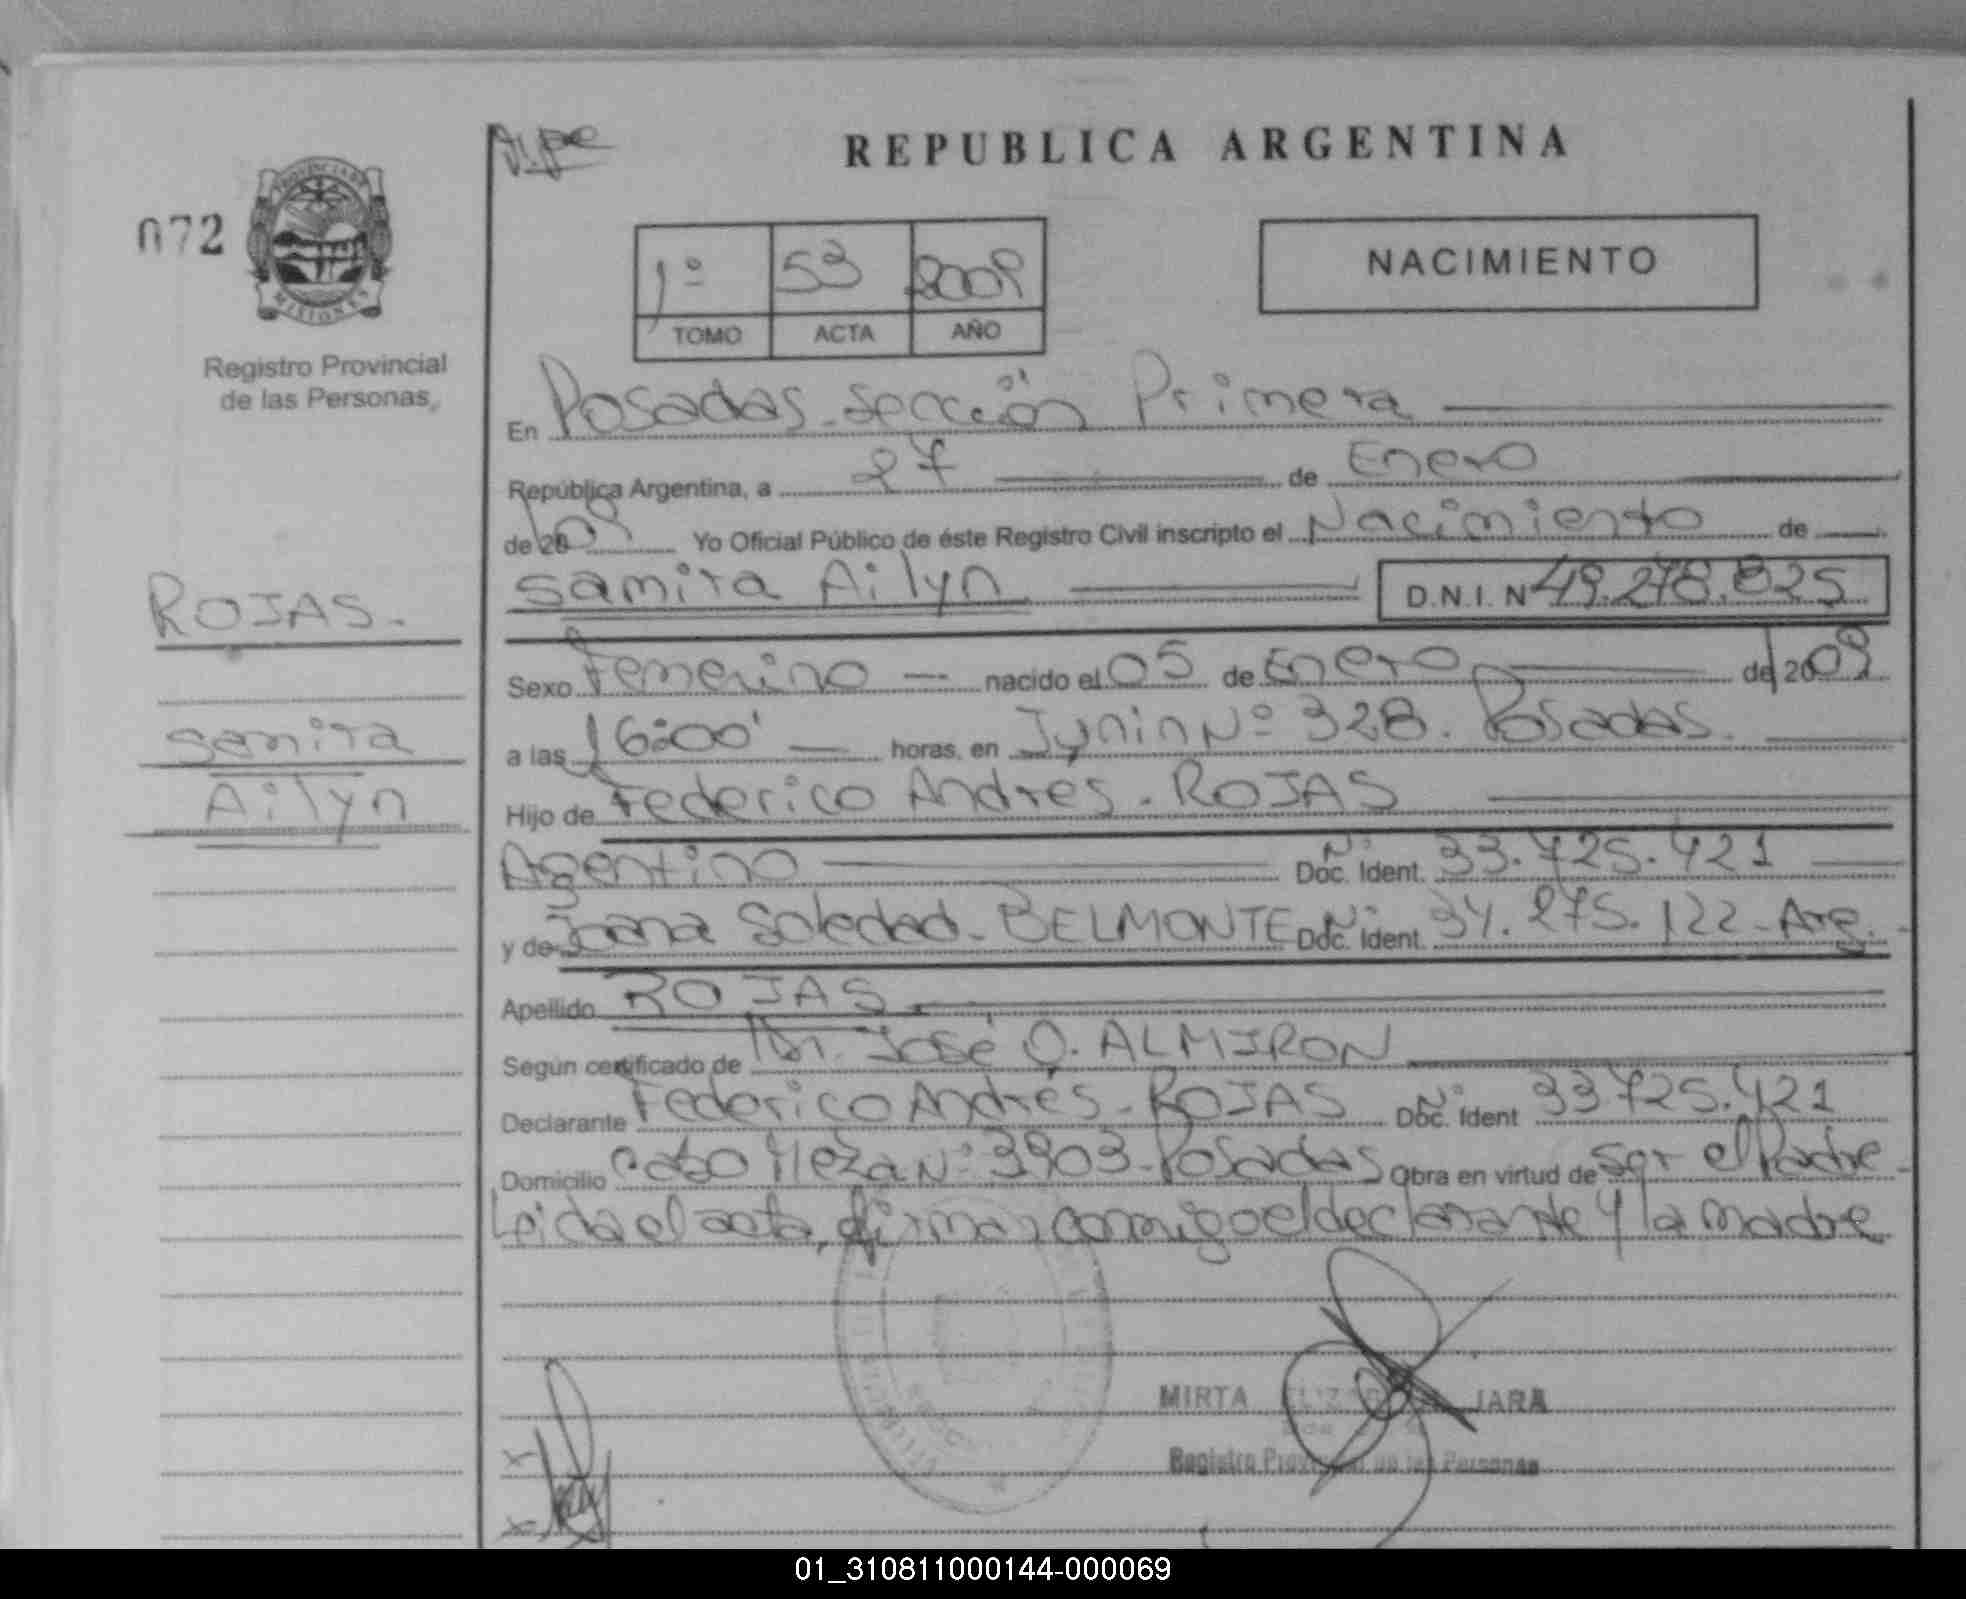 REPUBLICA ARGENTINA
072
PROVINCIA DE
MISIONES
Registro Provincial
de las Personas
1º 53 2009
TOMO ACTA AÑO
NACIMIENTO
En Posadas - Sección Primera
República Argentina, a 27 de Enero
de 2009 Yo Oficial Público de éste Registro Civil inscripto el Nacimiento de
Samira Ailyn D.N.I. Nº 49.278.825
ROJAS.
Samira
Ailyn
Sexo Femenino nacido el 05 de Enero de 2009
a las 16:00' horas, en Junin Nº 328. Posadas.
Hijo de Federico Andres. ROJAS
Agentino Nº Doc. Ident. 33.725.421
y de Joana Soledad. BELMONTE Nº Doc. Ident. 34.275.122 - Arg.
Apellido ROJAS.
Según certificado de Dr. José O. ALMIRON
Declarante Federico Andrés. ROJAS Nº Doc. Ident 33725.421
Domicilio Cabo Meza Nº 3903 - Posadas Obra en virtud de ser el Padre -
Leida el acta, firman conmigo el declarante y la madre
MIRTA JARA
Registro Provincial de las Personas
01_310811000144-000069